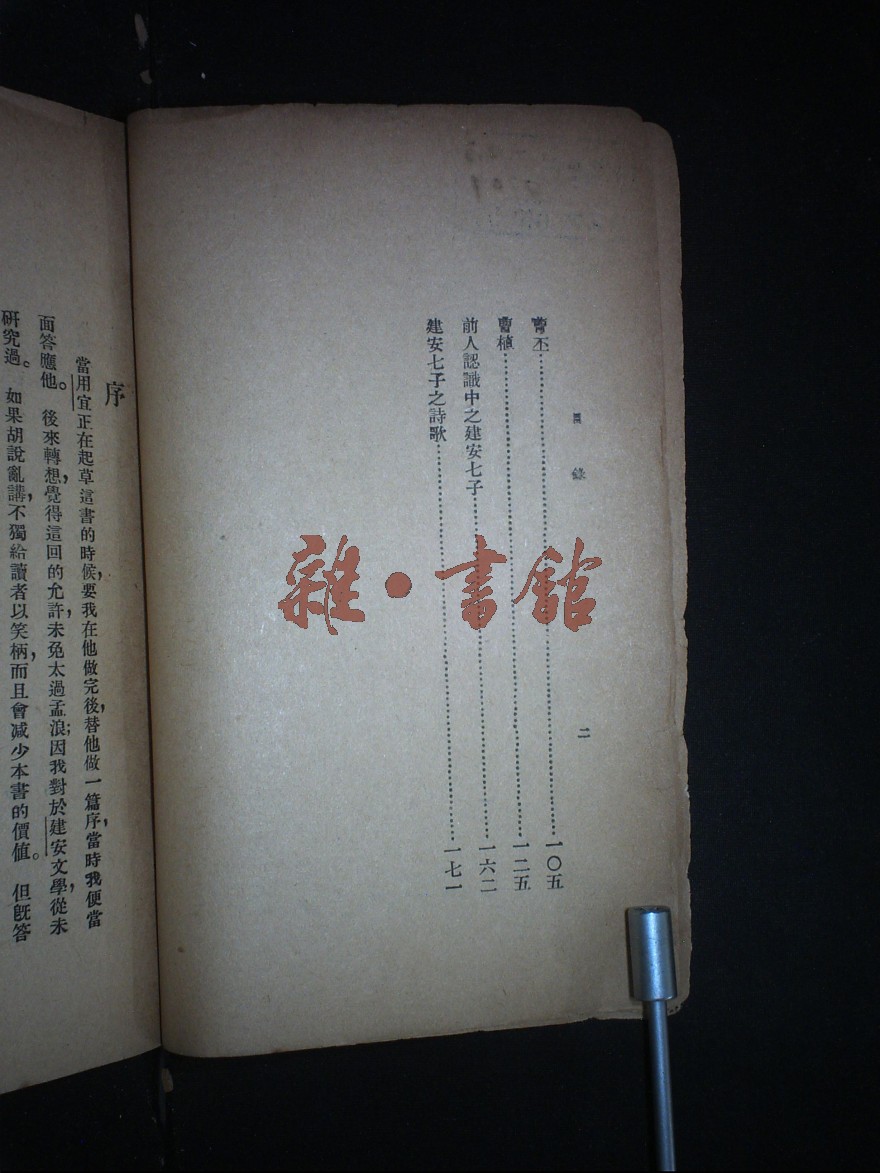 目錄
二
曹丕……一〇五
曹植……一二五
前人認識中之建安七子……一六二
建安七子之詩歌……一七一
序
當用宜正在起草這書的時候，要我在他做完後，替他做一篇序，當時我便當
面答應他。後來轉想，覺得這回的允許，未免太過孟浪；因我對於建安文學，從未
研究過。如果胡說亂講，不獨給讀者以笑柄，而且會减少本書的價值。但旣答
雜·書館